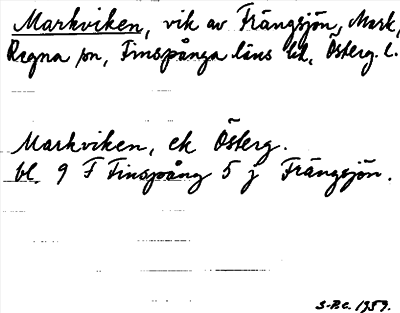 Markviken, vik av Frängsjön, Mark,
Regna sn, Finspånga läns hd, Österg. l.
Markviken, ek Österg.
bl. 9 F Finspång 5 j Frängsjön.
S-B.C. 1959.